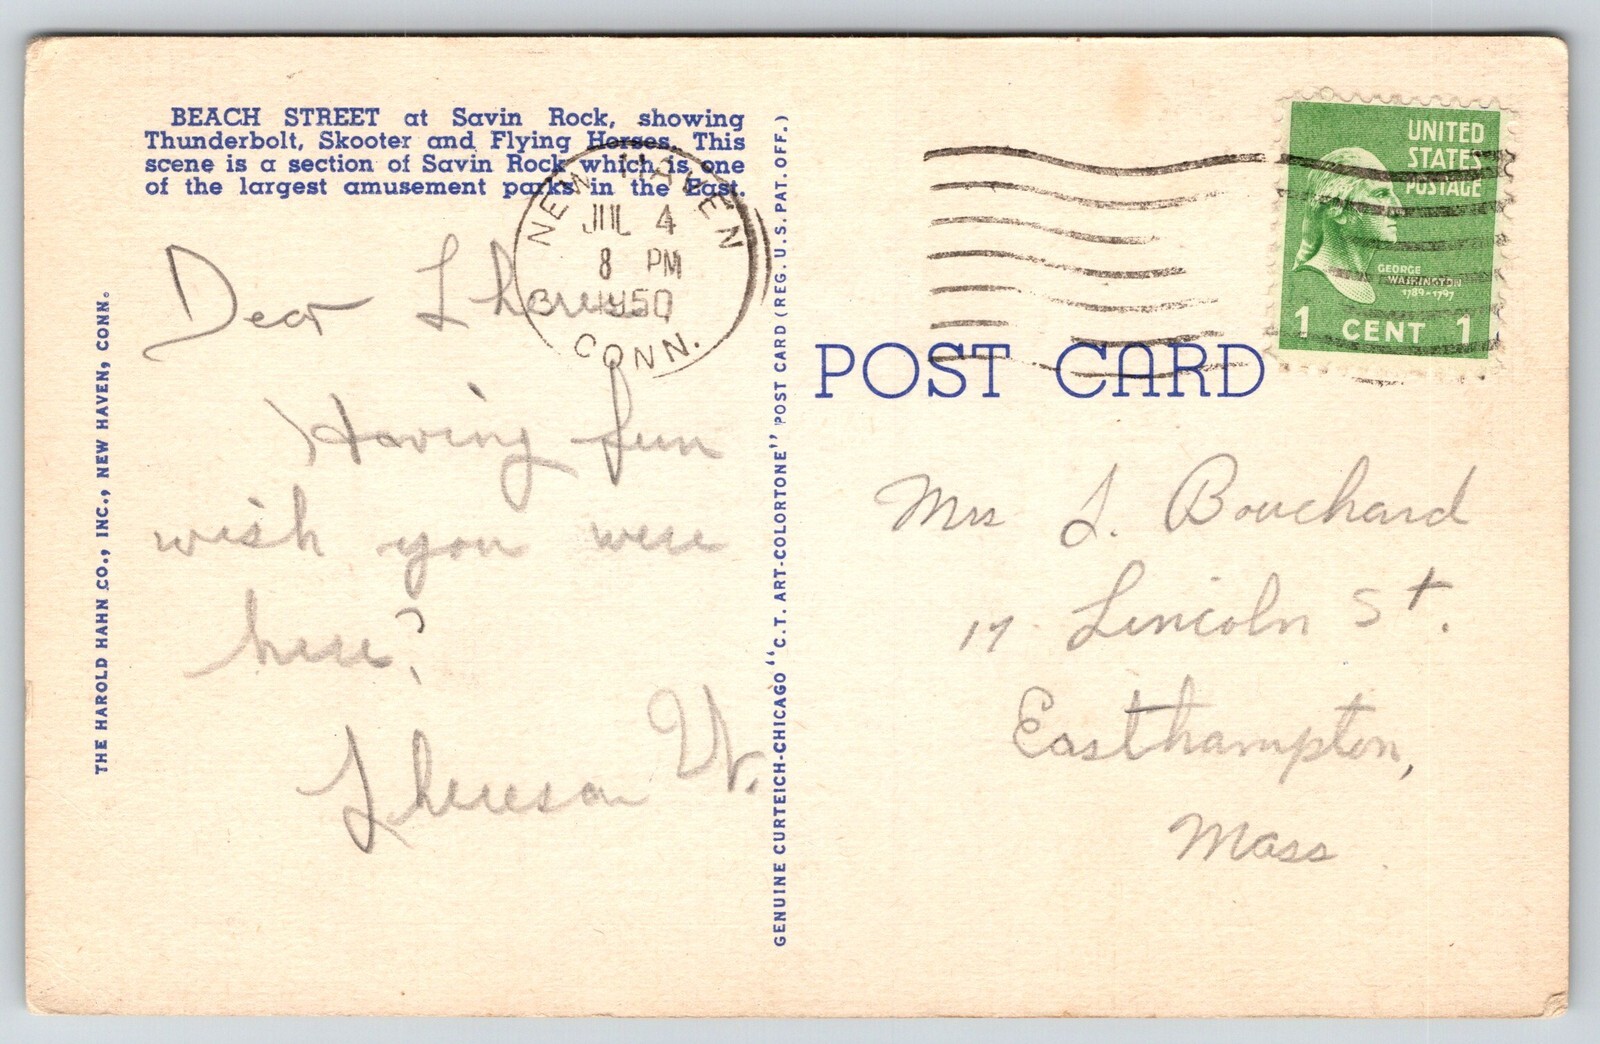 BEACH STREET at Savin Rock, showing
Thunderbolt, Skooter and Flying Horses. This
scene is a section of Savin Rock which is one
of the largest amusement parks in the East.
NEW HAVEN
JUL 4
8 PM
1950
CONN.
Dear
Having fun
wish you were
here?
Theresa W.
THE HAROLD HAHN CO., INC., NEW HAVEN, CONN.
GENUINE CURTEICH-CHICAGO "C.T. ART-COLORTONE" POST CARD (REG. U.S. PAT. OFF.)
UNITED
STATES
POSTAGE
GEORGE
WASHINGTON
1789-1797
1 CENT 1
POST CARD
Mrs J. Bouchard
17 Lincoln St.
Easthampton,
Mass